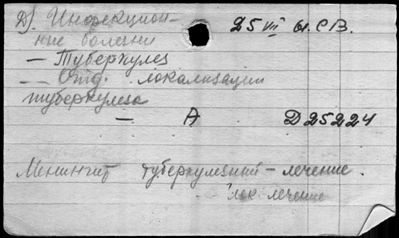 Д). Инфекцион-
ные болезни
25 VII 61. СВ.
— Туберкулез
— — Отд. локализации
туберкулеза
— А Д25224
Менингит туберкулезный – лечение.
— " — лок лечение